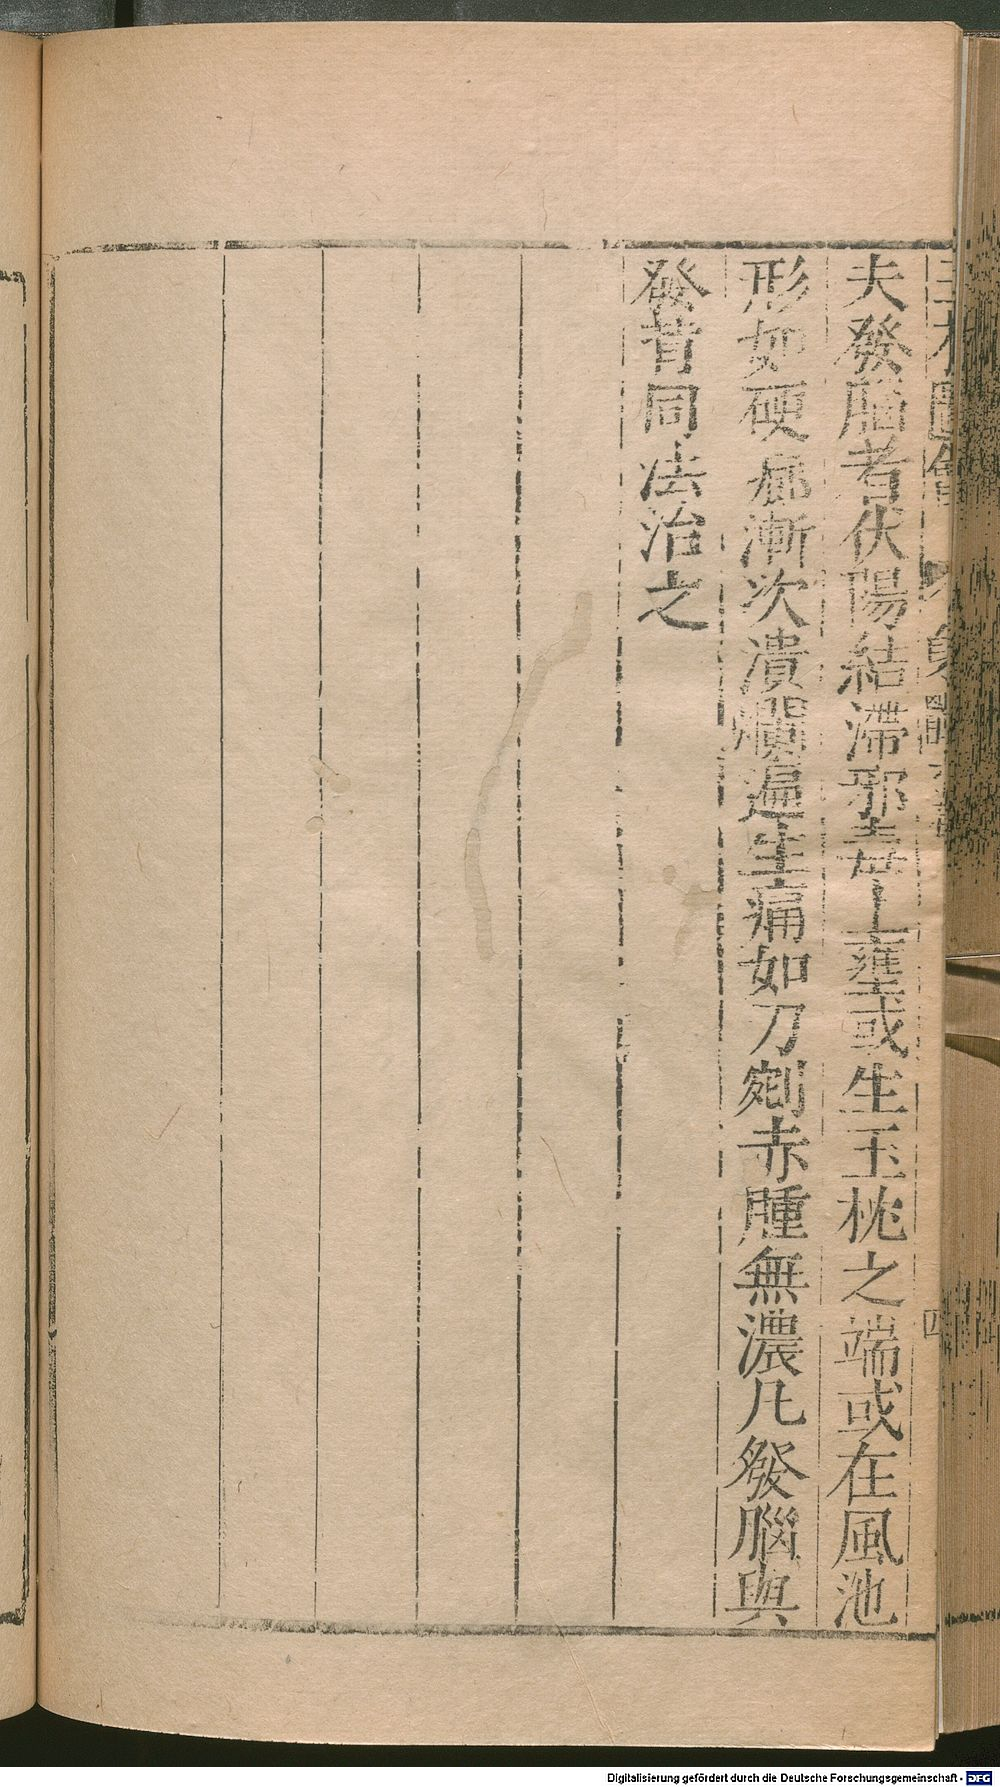 夫發腦者伏陽結滯邪毒上壅或生玉枕之端或在風池
形如硬𤺋漸次潰爛遍生痛如刀剜赤腫無濃凡發腦與
發背同法治之
三才圖會
四
Digitalisierung gefördert durch die Deutsche Forschungsgemeinschaft - DFG